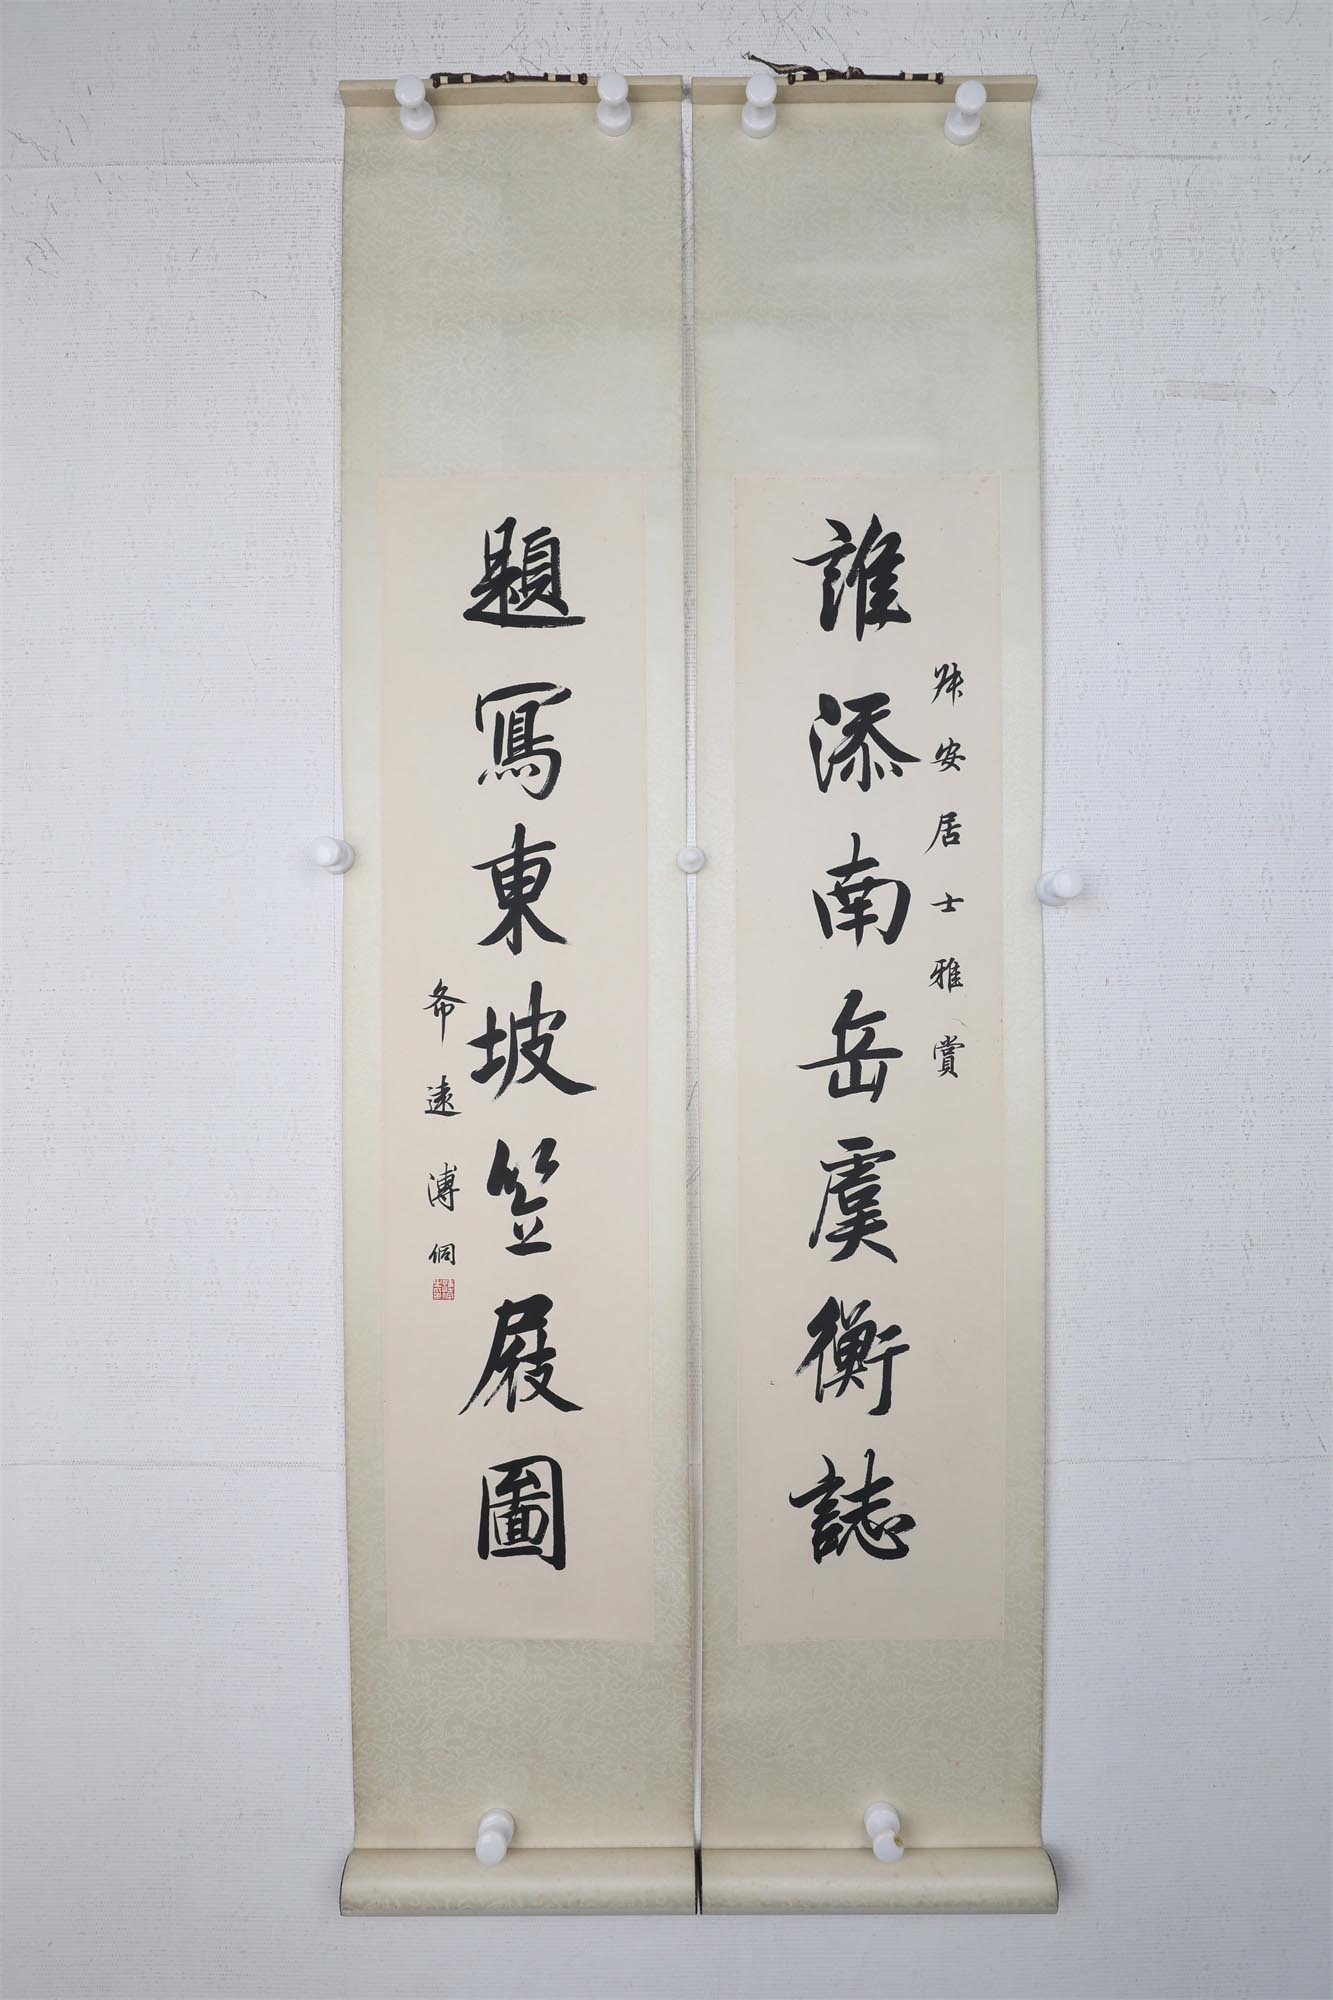 誰添南岳虞衡誌
安居士雅賞
題寫東坡笠屐圖
希遠溥侗